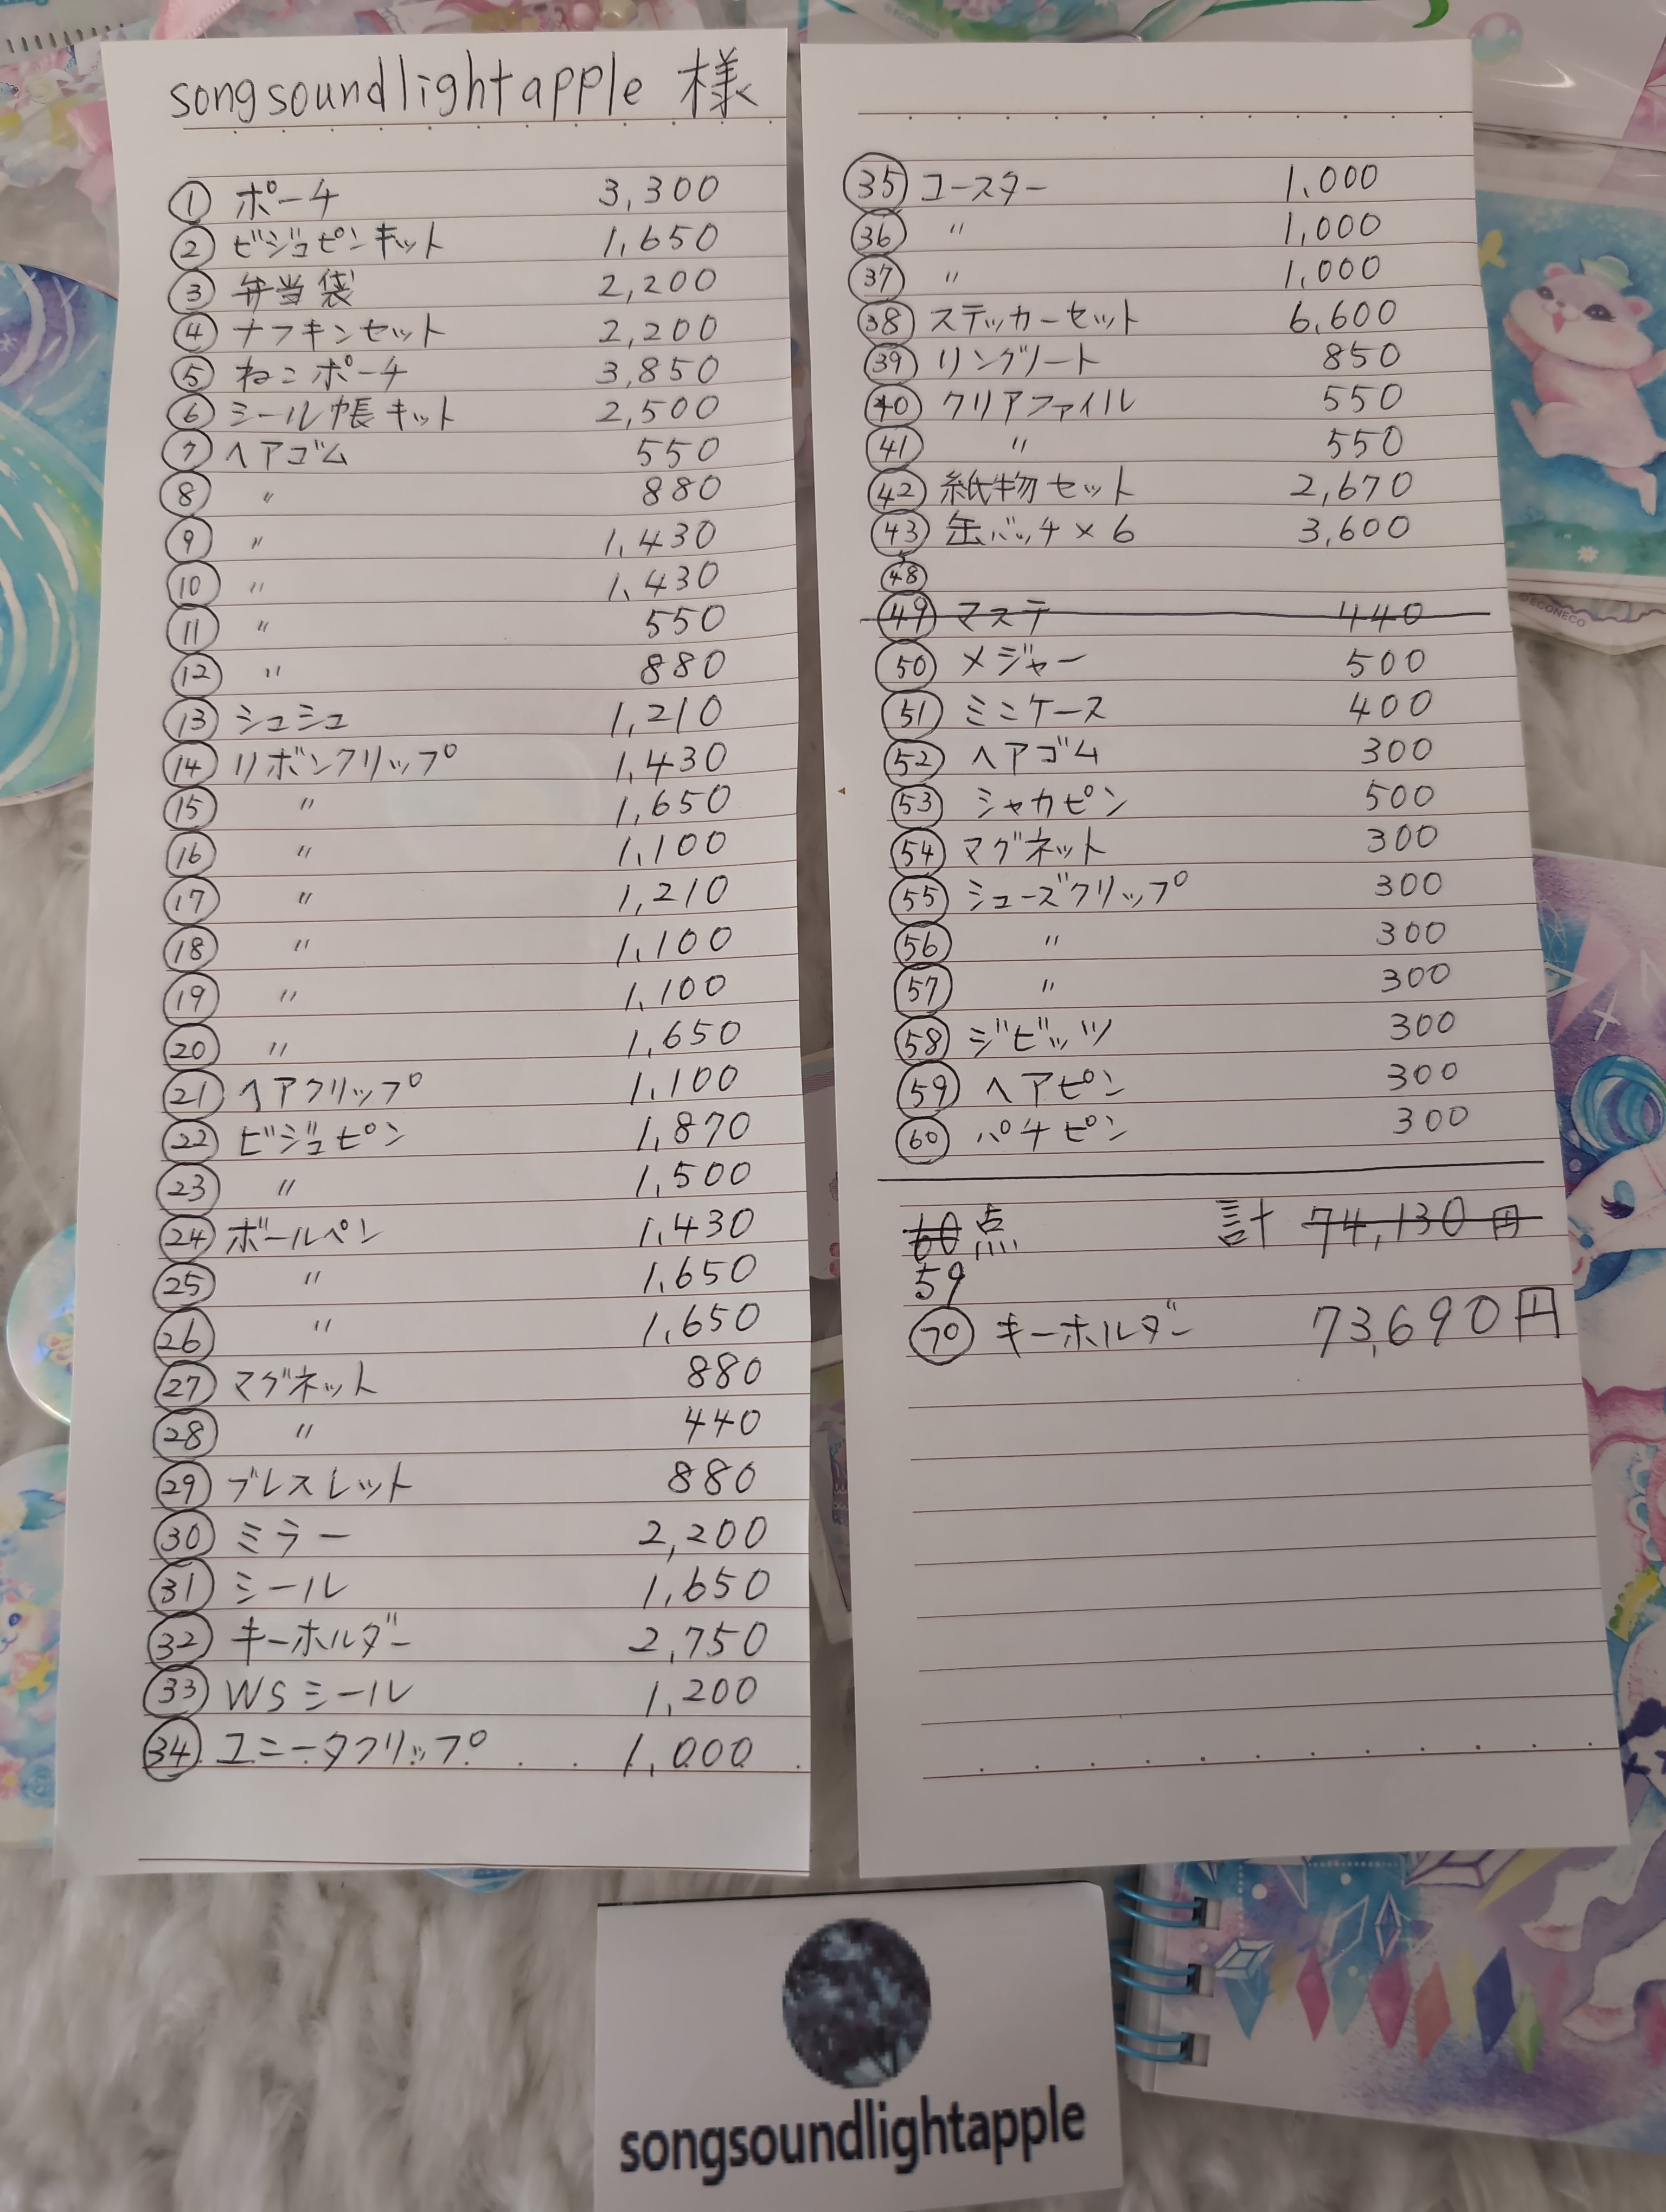 songsoundlightapple 様
① ポーチ 3,300
② ビジュピンキット 1,650
③ 弁当袋 2,200
④ ナフキンセット 2,200
⑤ ねこポーチ 3,850
⑥ シール帳キット 2,500
⑦ ヘアゴム 550
⑧ 〃 880
⑨ 〃 1,430
⑩ 〃 1,430
⑪ 〃 550
⑫ 〃 880
⑬ シュシュ 1,210
⑭ リボンクリップ 1,430
⑮ 〃 1,650
⑯ 〃 1,100
⑰ 〃 1,210
⑱ 〃 1,100
⑲ 〃 1,100
⑳ 〃 1,650
㉑ ヘアクリップ 1,100
㉒ ビジュピン 1,870
㉓ 〃 1,500
㉔ ボールペン 1,430
㉕ 〃 1,650
㉖ 〃 1,650
㉗ マグネット 880
㉘ 〃 440
㉙ ブレスレット 880
㉚ ミラー 2,200
㉛ シール 1,650
㉜ キーホルダー 2,750
㉝ WSシール 1,200
㉞ ユニータクリップ 1,000
㉟ コースター 1,000
㊱ 〃 1,000
㊲ 〃 1,000
㊳ ステッカーセット 6,600
㊴ リングノート 850
㊵ クリアファイル 550
㊶ 〃 550
㊷ 紙物セット 2,670
㊸ 缶バッチ×6 3,600
〜
㊽
㊾ マステ 440
㊿ メジャー 500
51 ミニケース 400
52 ヘアゴム 300
53 シャカピン 500
54 マグネット 300
55 シューズクリップ 300
56 〃 300
57 〃 300
58 ジビッツ 300
59 ヘアピン 300
60 パチピン 300
60 点 計 74,130円
59
70 キーホルダー 73,690円
©ECONECO
©ECONECO
songsoundlightapple